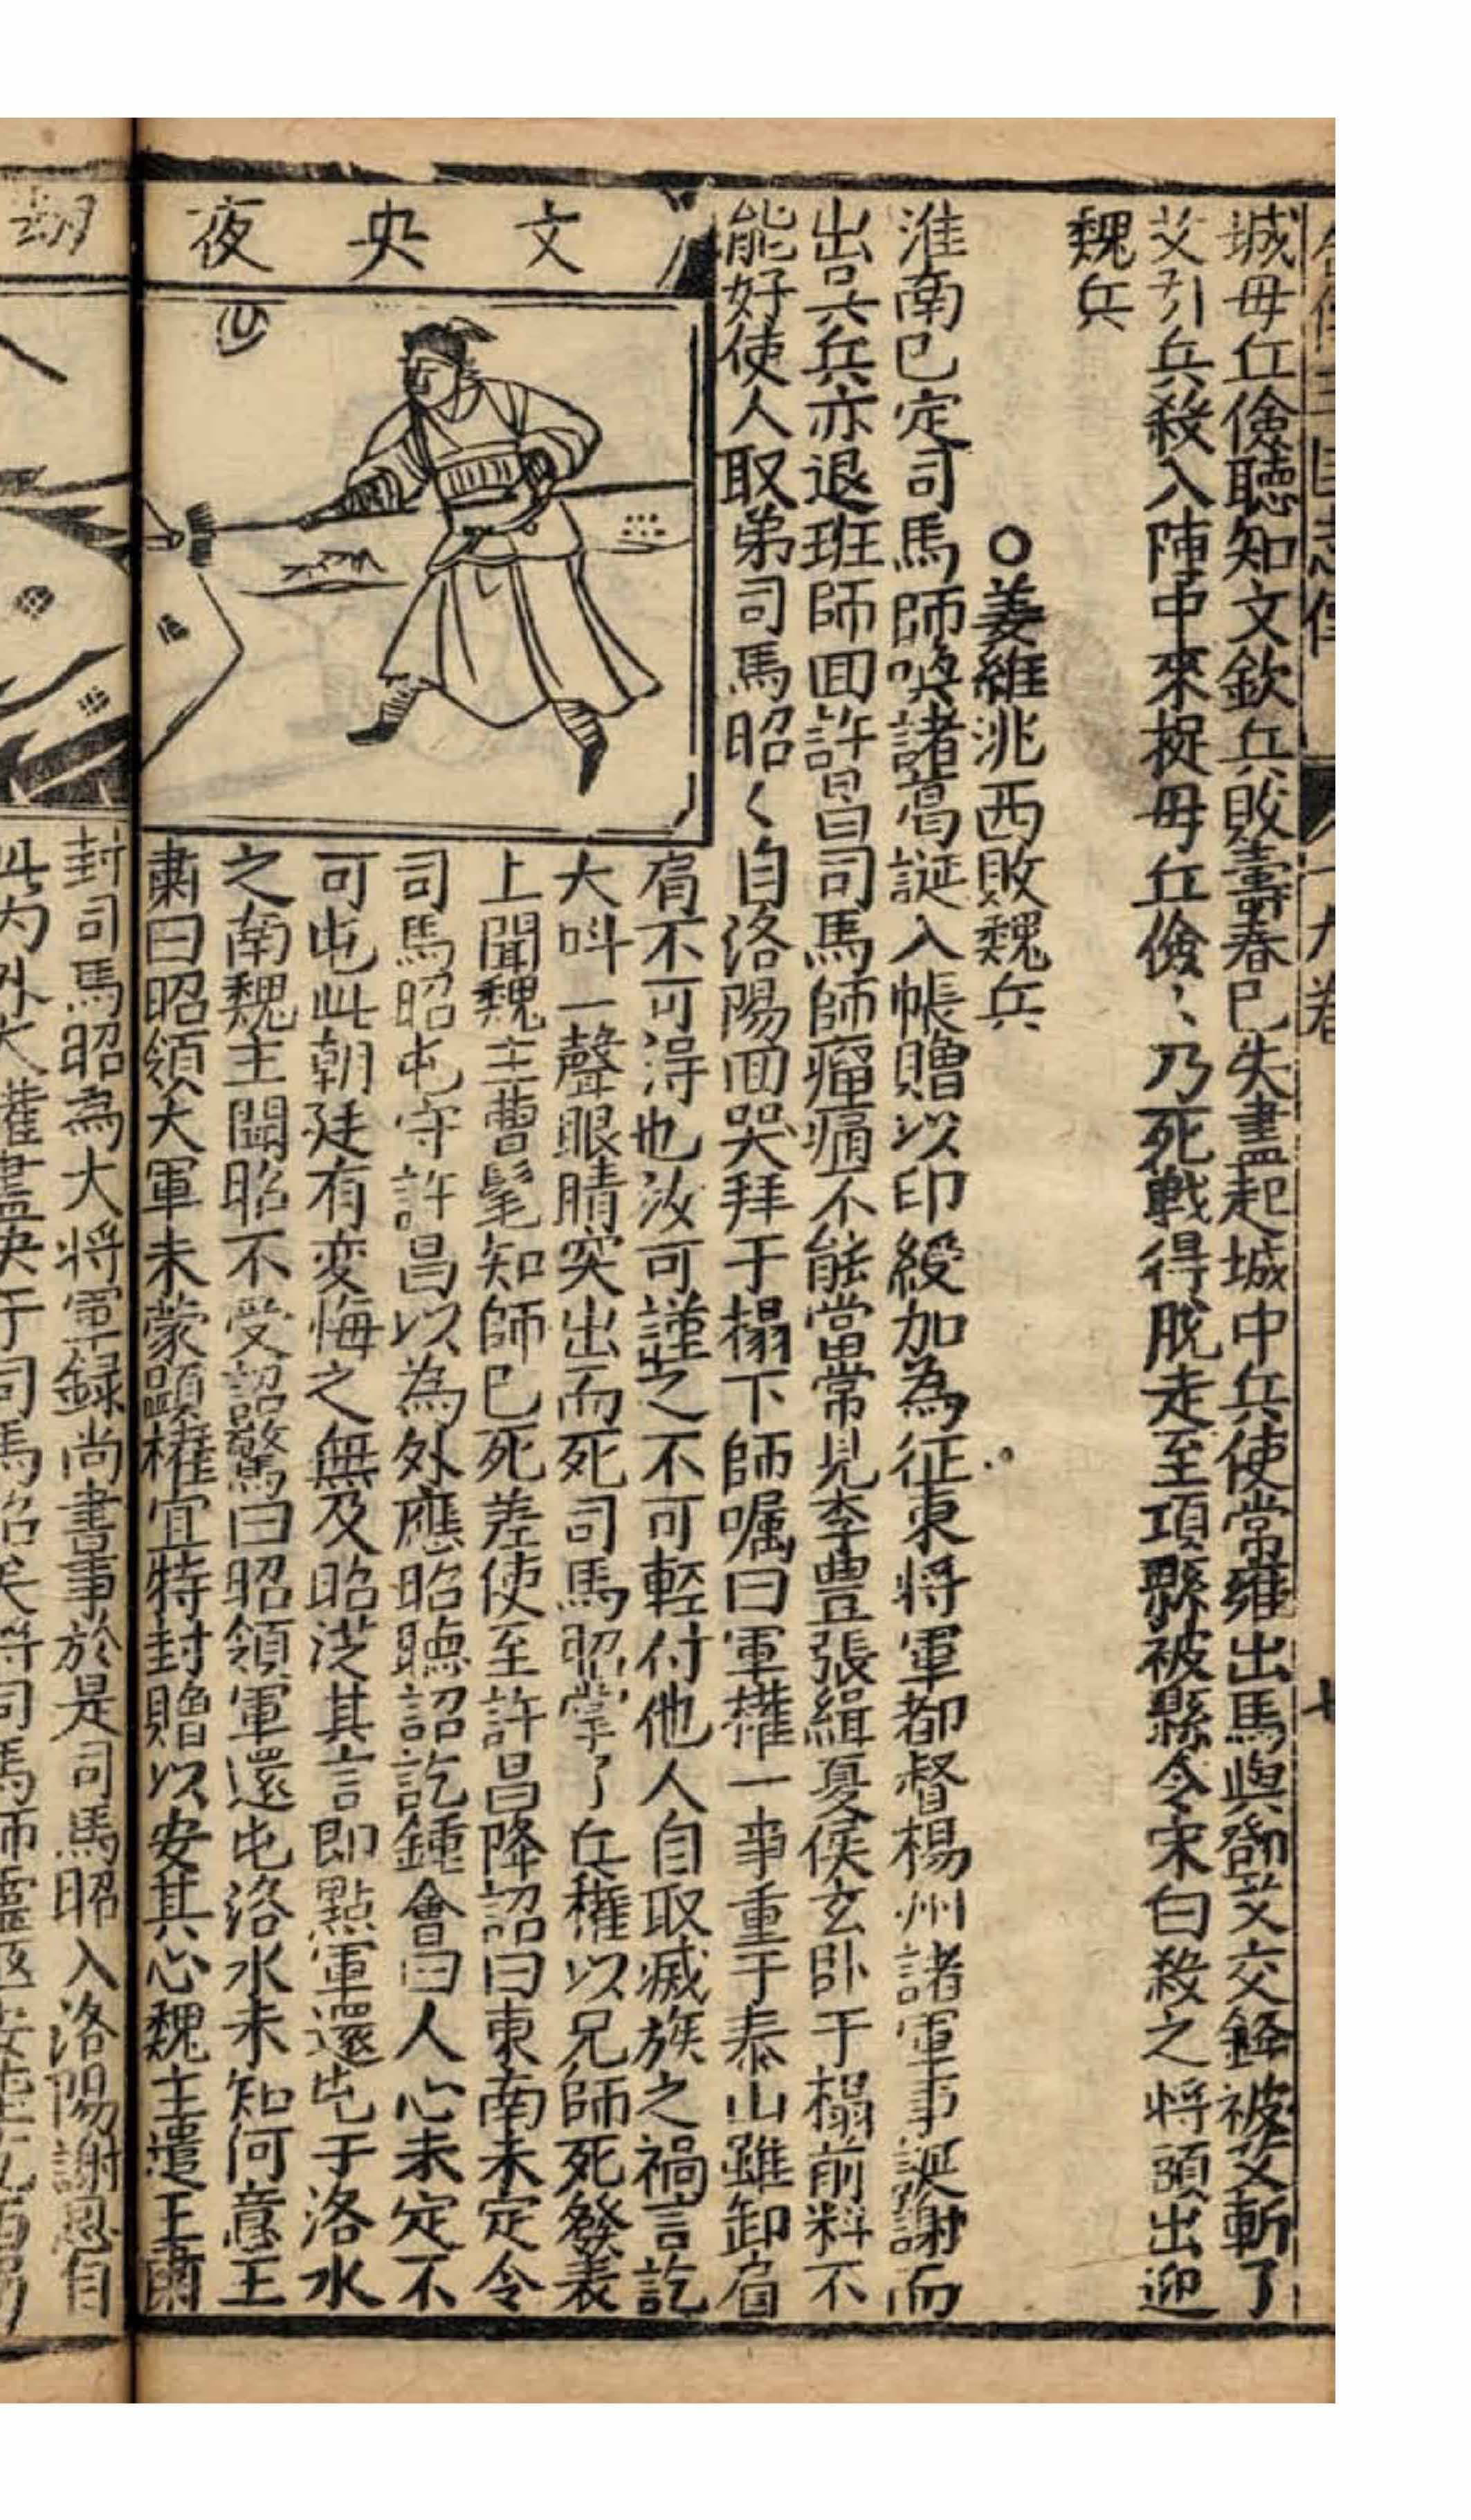 十九卷
城毋丘儉聽知文欽兵敗壽春已失盡起城中兵使常雍出馬與鄧艾交鋒被艾斬了
艾引兵殺入陣中來捉毋丘儉〻乃死戰得脫走至項縣被縣令宋白殺之将頭出迎
魏兵
○姜維洮西敗魏兵
淮南已定司馬師喚諸葛誕入帳贈以印綬加為征東将軍都督楊州諸軍事誕謝而
出吳兵亦退班師囬許昌司馬師瘤痛不能當常見李豊張緝夏侯玄卧于榻前料不
能好使人取弟司馬昭〱自洛陽囬哭拜于榻下師嘱曰軍權一事重于泰山雖卸肩
肩不可得也汝可謹之不可輕付他人自取滅族之禍言訖
大呌一聲眼睛突出而死司馬昭掌了兵權以兄師死發表
上聞魏主曹髦知師已死差使至許昌降詔曰東南未定令
司馬昭屯守許昌以為外應昭聽詔訖鍾會曰人心未定不
可屯此朝廷有変悔之無及昭従其言即點軍還屯于洛水
之南魏主聞昭不受詔驚曰昭領軍還屯洛水未知何意王
肅曰昭領大軍未蒙顯權宜特封贈以安其心魏主遣王肅
文央夜
封司馬昭為大将軍録尚書事於是司馬昭入洛陽謝恩自
刼